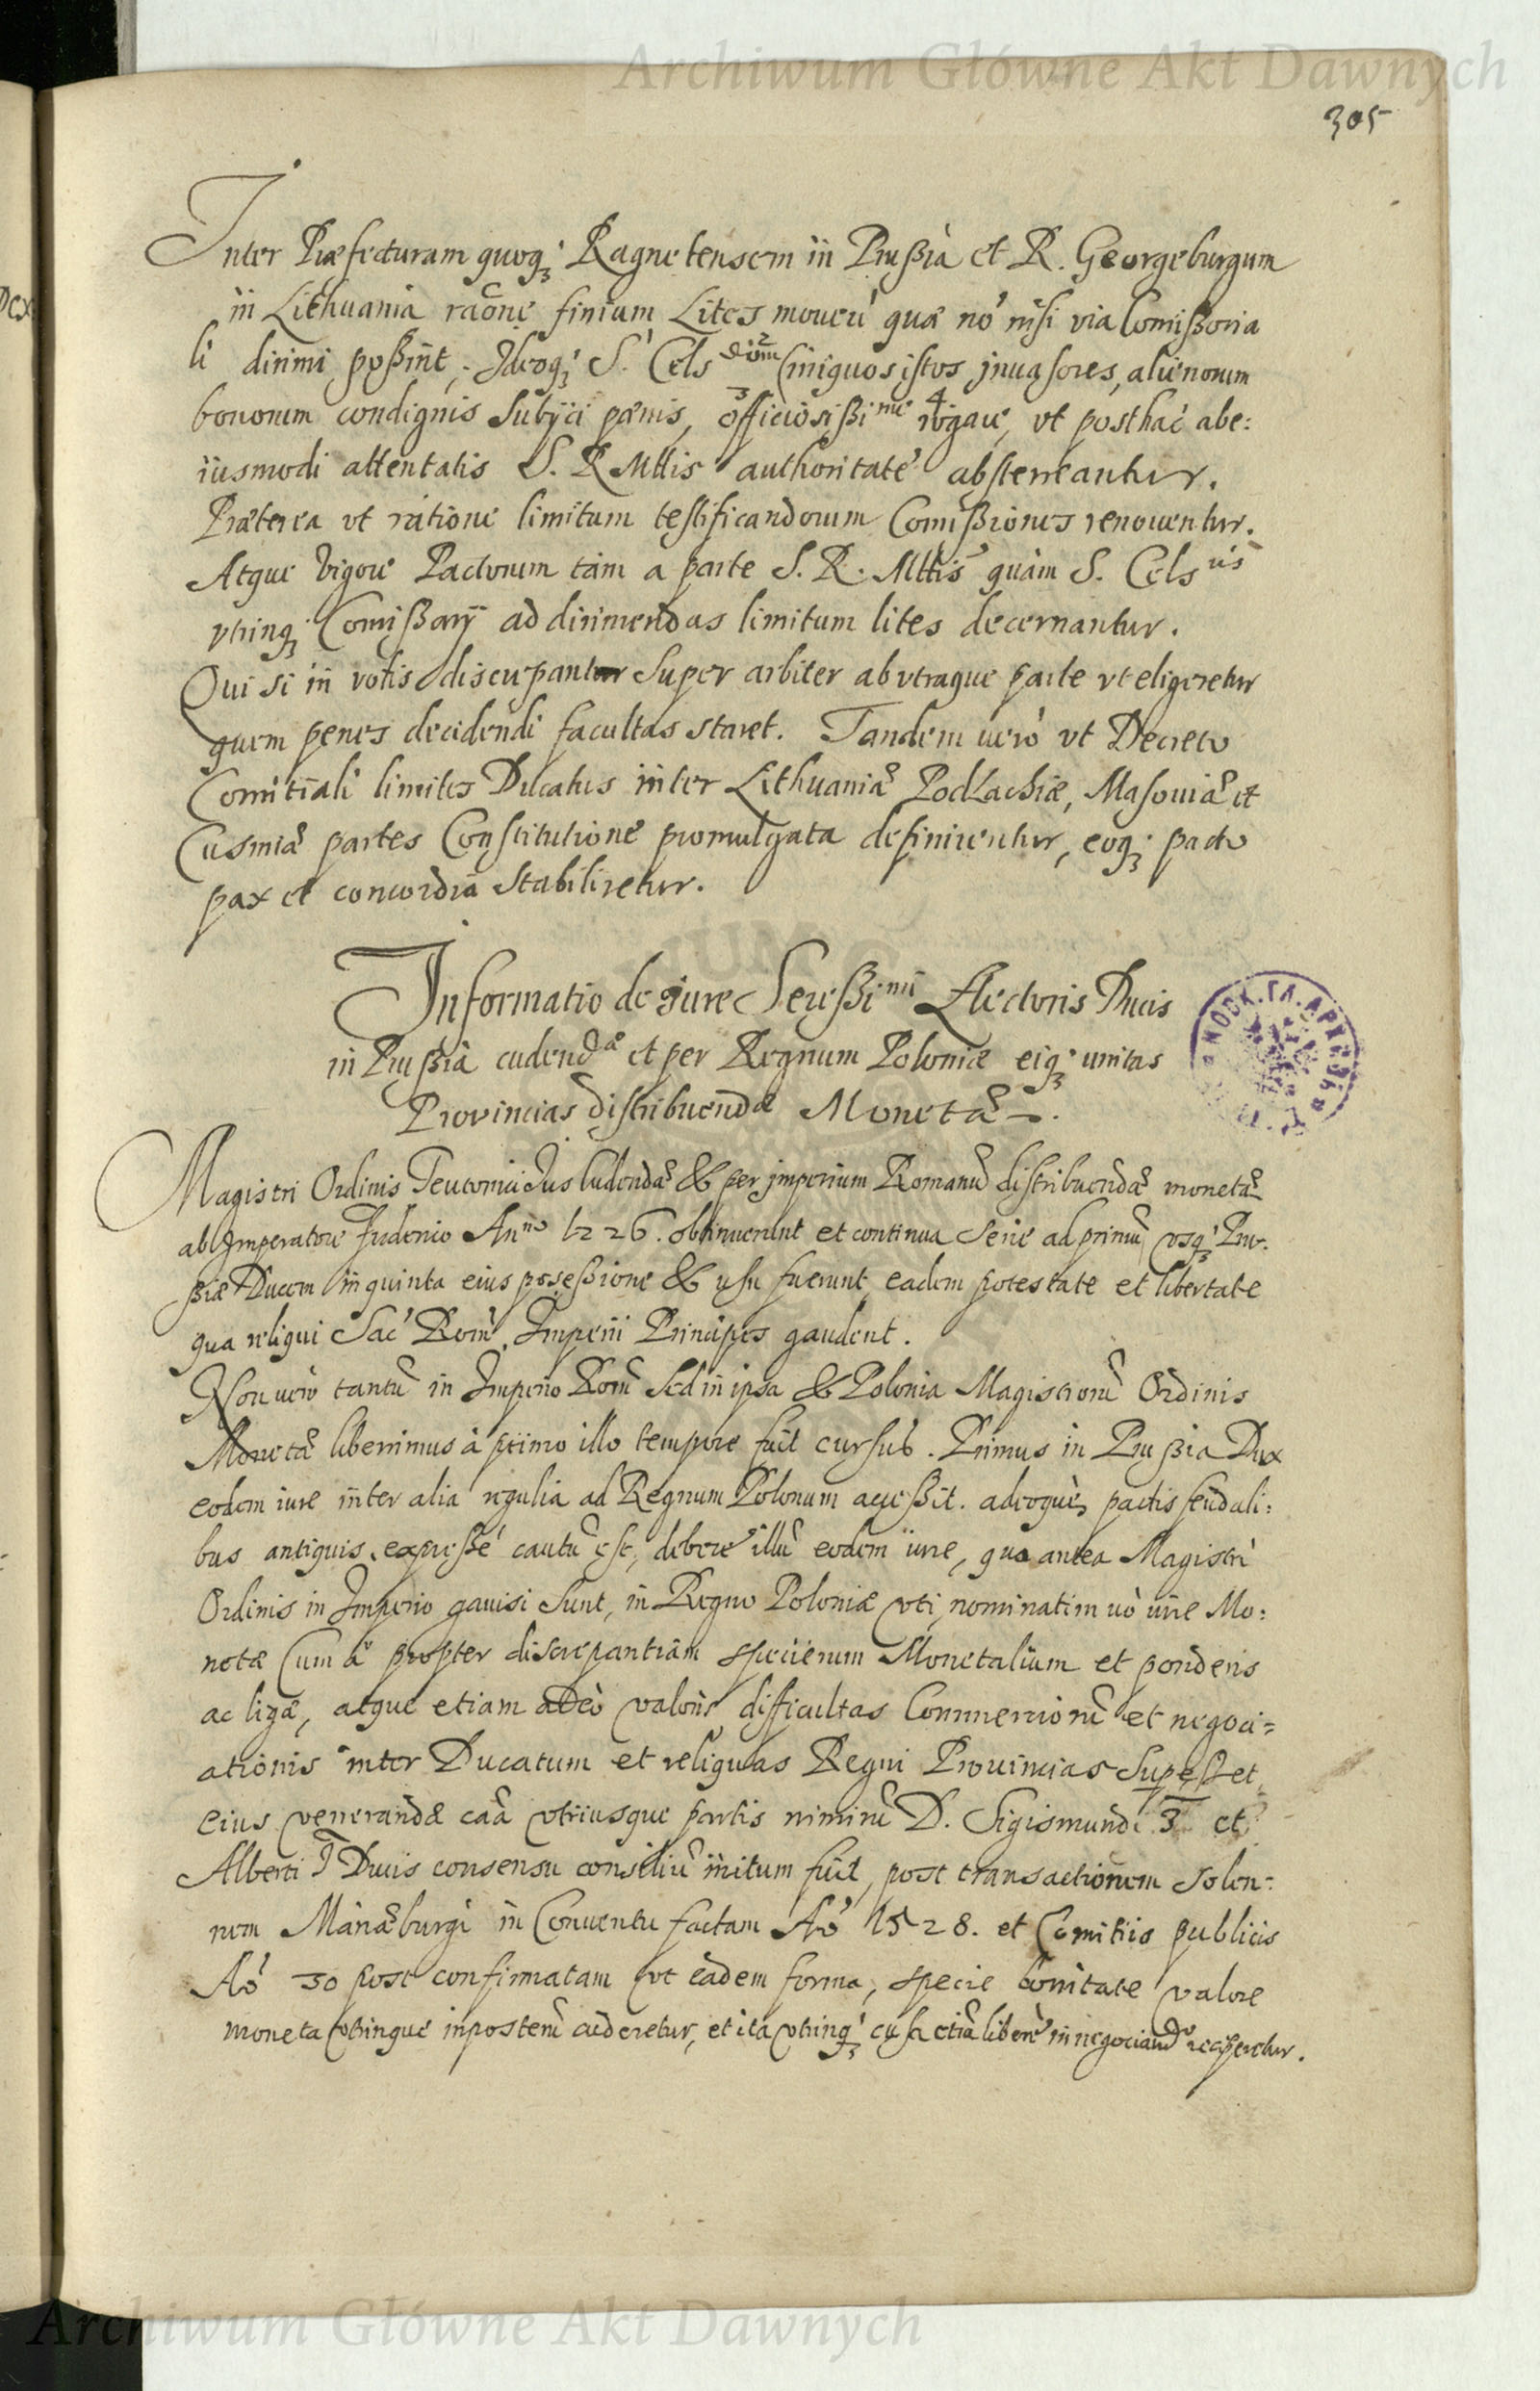 Archiwum Główne Akt Dawnych
305
Inter Præfecturam quoq; Ragnetensem in Prußia et R. Georgeburgum
in Lithuania raone finium Lites moueri quæ nō nisi via Comißoria
li dirimi poßint, Ideoq; S. Cels dom iniquos istos inuasores, alienorum
bonorum condignis subijci pœnis, officiosißime rogaue, vt posthac abe:
iusmodi attentatis S. R Mttis authoritate absterreantur.
Præterea vt ratione limitum testificandorum Comißiones renouentur.
Atque vigore Pactorum tam a parte S. R. Mttis quàm S. Cels nis
vtrinq; Comißarij ad dirimendas limitum lites decernantur.
Qui si in votis discrepantur super arbiter ab vtraque parte vt eligeretur
quem penes decidendi facultas staret. Tandem uerò vt Decreto
Comitiali limites Ducatus inter Lithuaniæ Podlachiæ, Masouiæ et
Cusmiæ partes Constitutione promulgata definirentur, eoq; pacto
pax et concordia stabiliretur.
Informatio de iure Sereßimi Electoris Ducis
in Prußia cudendæ et per Regnum Poloniæ eiq; unitas
Provincias distribuendæ Monetæ.
Magistri Ordinis Teutonici Jus cudendæ & per imperium Romanū distribuendæ monetæ
ab Imperatore Fridenio Anno 1226. obtinuerunt et continua serie ad primū vsq; Pru-
ßiæ Ducem in quinta eius poseßione & usu fuerunt eadem potestate et libertate
qua reliqui Sac Rom. Imperii Principes gaudent.
Non uerò tantū in Imperio Rom sed in ipsa & Polonia Magistrorū Ordinis
Monetæ liberrimus à primo illo tempore fuit cursus. Primus in Prußia Dux
eodem iure inter alia regalia ad Regnum Polonum acceßit. adeoquè pactis feudali:
bus antiquis expreßé cautū est, debere illū eodem iure, quo antea Magistri
Ordinis in Imperio gauisi sunt, in Regno Poloniæ vti, nominatim uò iure Mo:
netæ Cum a propter discrepantiam specierum Monetalium et ponderis
ac ligæ, atque etiam adeò valoris difficultas Commerciorū et negoci=
ationis inter Ducatum et reliquas Regni Prouincias superßet,
eius venerandæ caā vtriusque partis nimirū D. Sigismundi 3 et
Alberti I Ducis consensu consiliū initum fuit, post transactionem solen:
nem Mariæburgi in Conuentu factam Aō 1528. et Comitiis publicis
Aō 30 post confirmatam vt eadem forma, specie bonitate valore
moneta vtrinque inposterū cuderetur, et ita vtrinq; cusa etiā liberè in negociando reciperetur.
Archiwum Główne Akt Dawnych